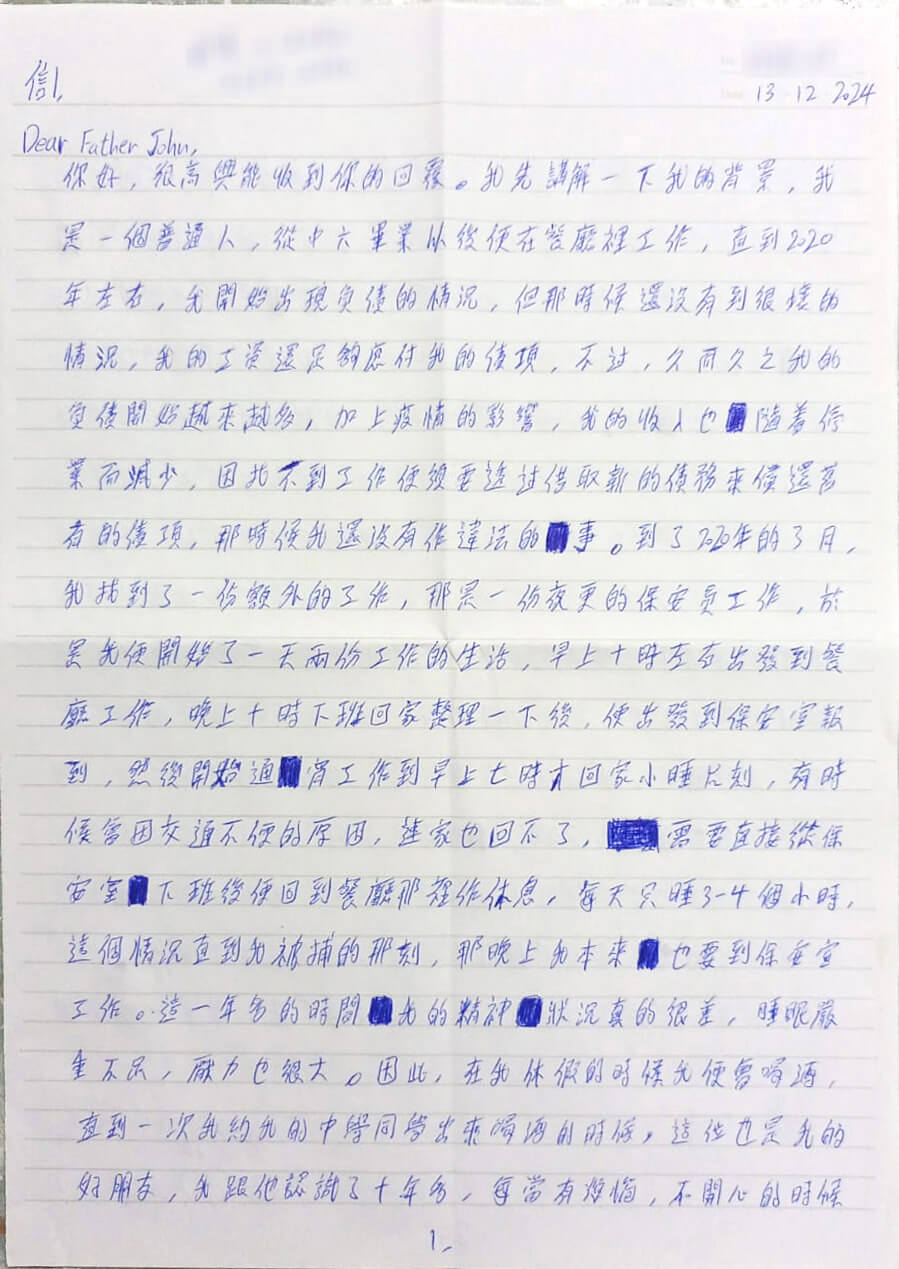 信1,
13 - 12 - 2024
Dear Father John,
你好，很高興能收到你的回覆。我先講解一下我的背景，我
是一個普通人，從中六畢業以後便在餐廳裡工作，直到2020
年左右，我開始出現負債的情況，但那時候還沒有到很壞的
情況，我的工資還足夠應付我的債項，不过，久而久之我的
負債開始越來越多，加上疫情的影響，我的收入也隨着停
業而減少，因找不到工作便須要透过借取新的債務來償還舊
有的債項，那時候我還没有作違法的事。到了2020年的3月，
我找到了一份額外的工作，那是一份夜更的保安員工作，於
是我便開始了一天兩份工作的生活，早上十時左右出發到餐
廳工作，晚上十時下班回家整理一下後，便出發到保安室報
到，然後開始通宵工作到早上七時才回家小睡片刻，有時
候會因交通不便的原因，連家也回不了，需要直接從保
安室下班後便回到餐廳那裡作休息，每天只睡3-4個小時，
這個情況直到我被捕的那刻，那晚上我本來也要到保安室
工作。這一年多的時間我的精神狀況真的很差，睡眠嚴
重不足，壓力也很大。因此，在我休假的時候我便會喝酒，
直到一次我約我的中學同學出來喝酒的時候，這位也是我的
好朋友，我跟他認識了十年多，每當有煩惱，不開心的時候
1,